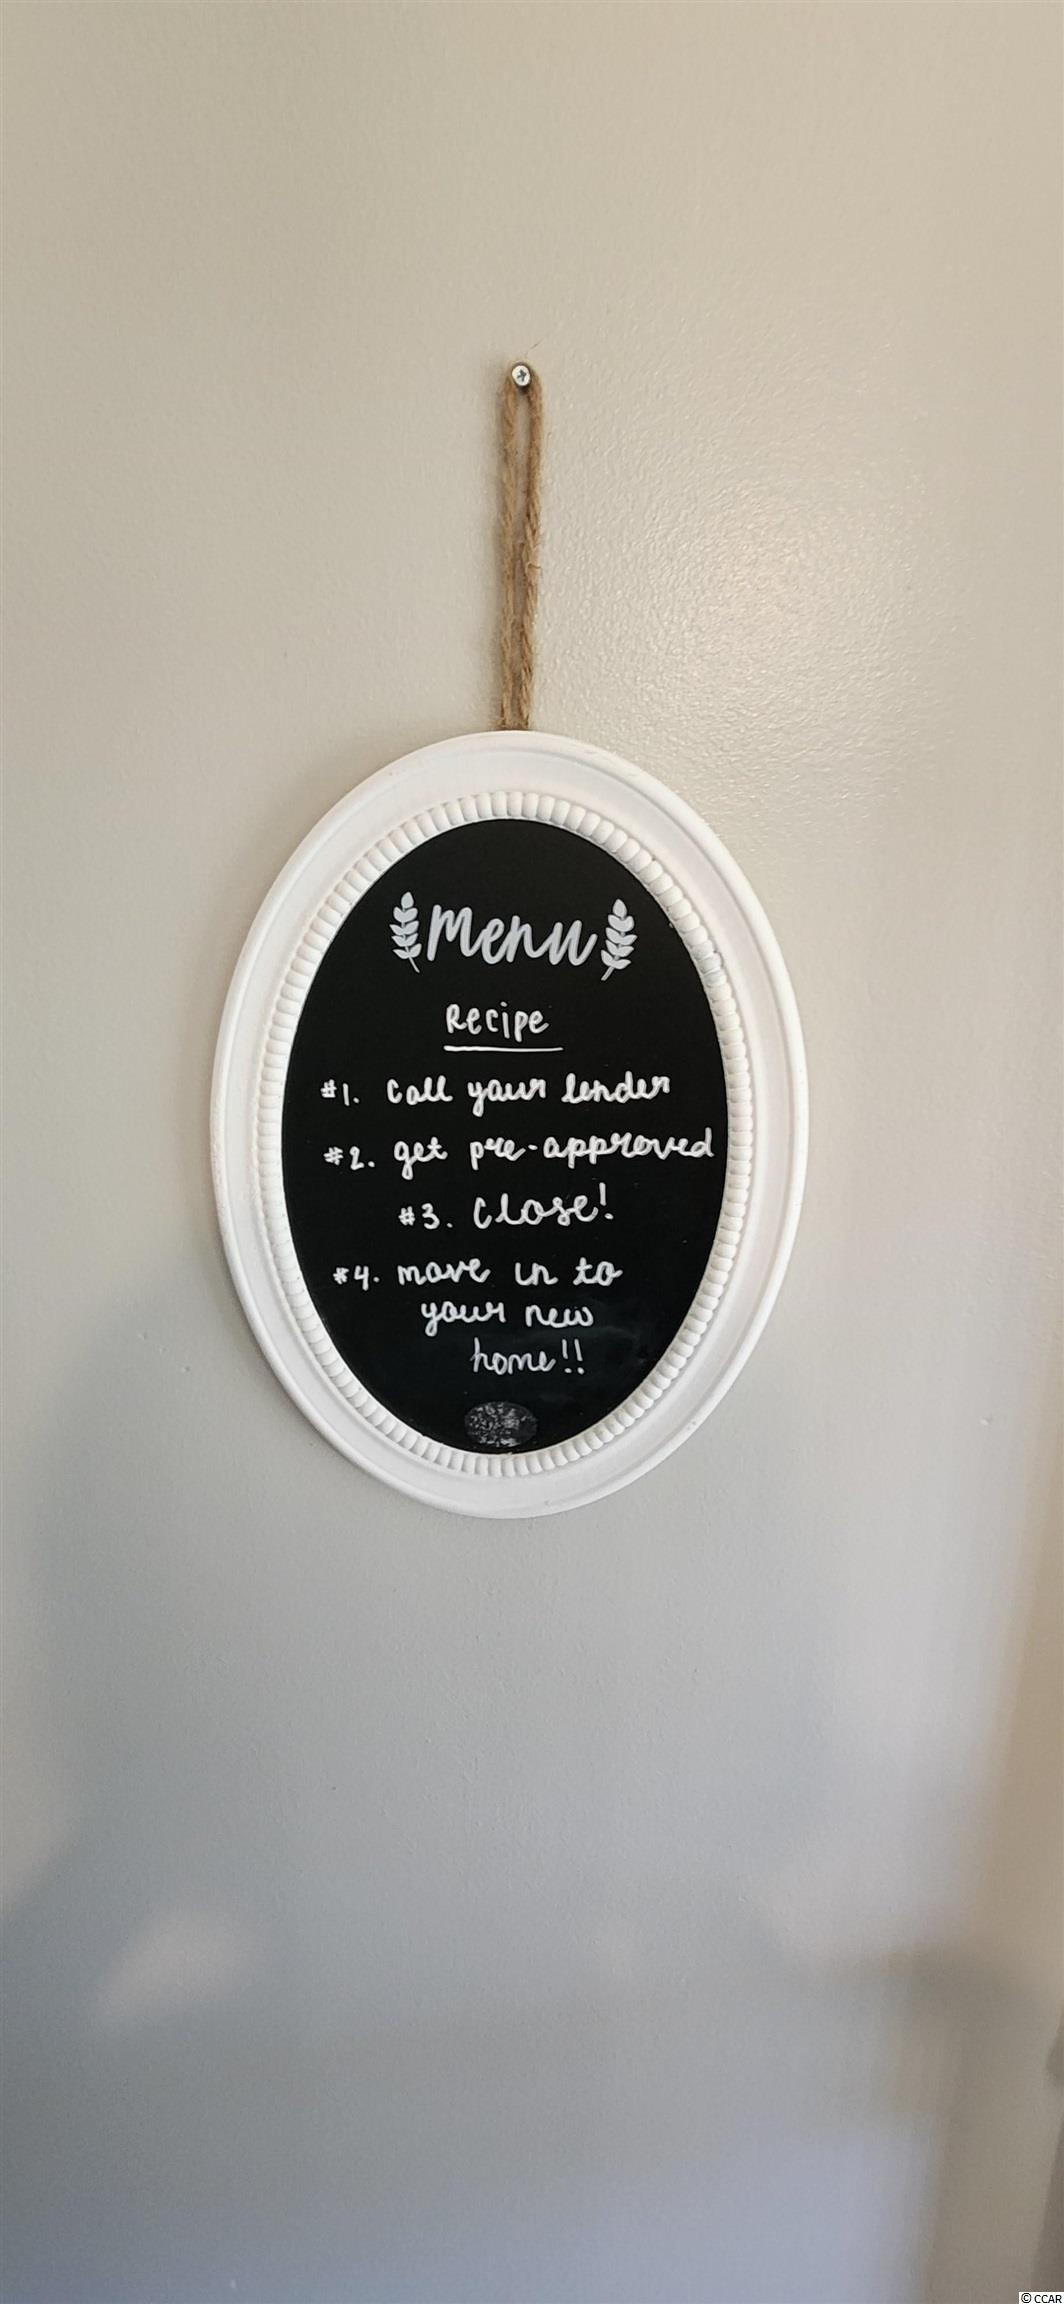 Menu
Recipe
#1. Call your lender
#2. get pre-approved
#3. Close!
#4. move in to
your new
home!!
© CCAR